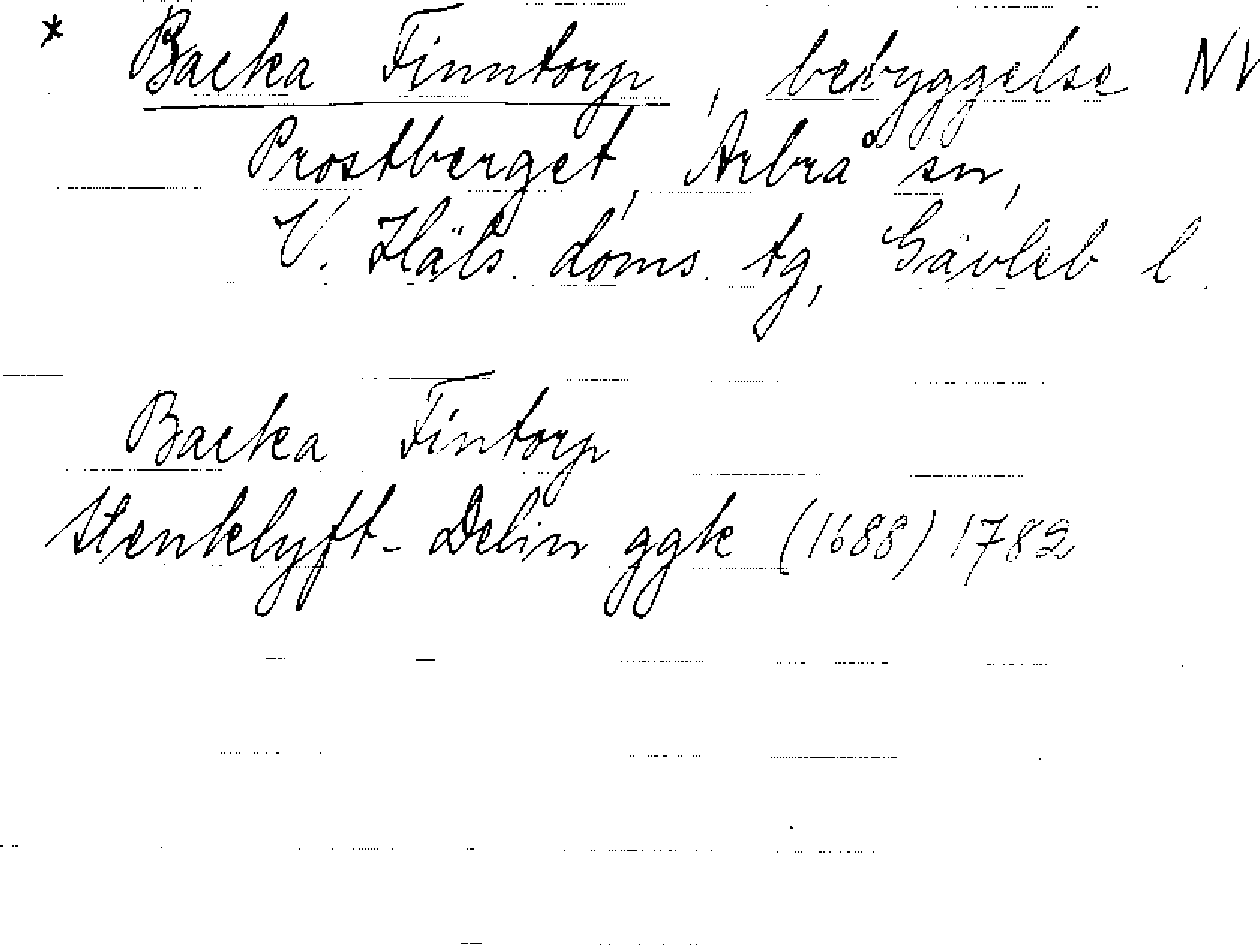 * Backa Finntorp, bebyggelse NV
Prostberget, Arbrå sn,
V. Häls. doms. tg, Gävleb l.
Backa Fintorp
Stenklyft-Delin ggk (1688) 1782